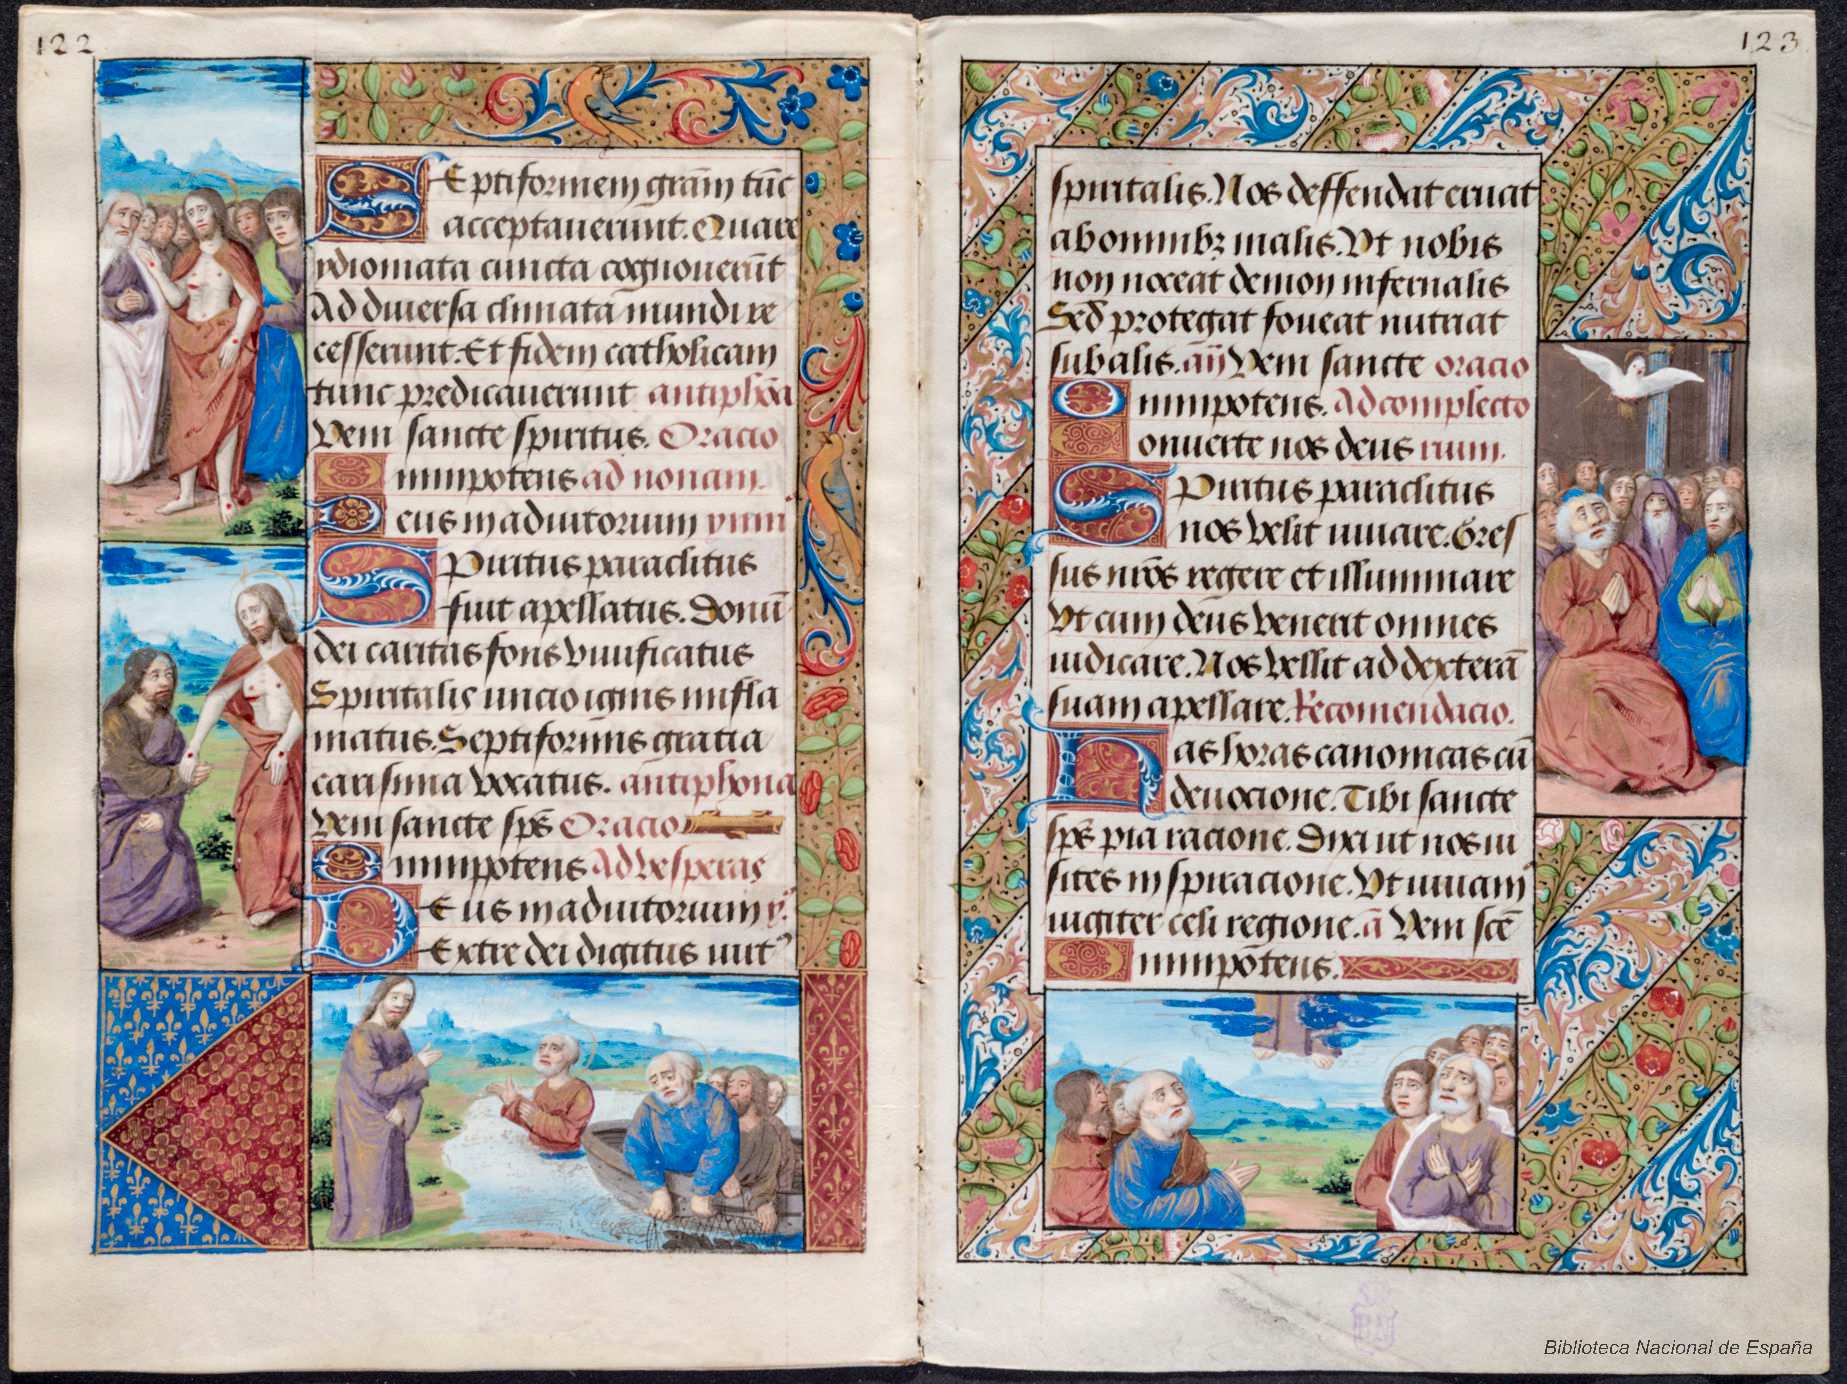 122
Septiformem grãm tũc
acceptauerunt. Quare
ydiomata cuncta cognouerũt
Ad diuersa climata mundi re
cesserunt. Et fidem catholicam
tunc predicauerunt antiphõa
Veni sancte spiritus. Oracio
Omnipotens ad nonam.
Deus in adiutorium
Spiritus paraclitus
fuit apellatus. Donũ
dei caritas fons viuificatus
Spiritalis uncio ignis infla
matus. Septiformis gratia
carisma vocatus. antiphona
Veni sancte sp̃s Oracio
Omnipotens Ad vesperas
Deus in adiutorium
Dextre dei digitus uirt
123
spiritalis. Nos deffendat eruat
ab omnibꝫ malis. Vt nobis
non noceat demon infernalis
Sed protegat foueat nutriat
sub alis. añ Veni sancte oracio
Omnipotens. Ad complecto
Conuerte nos deus rium.
Spiritus paraclitus
nos velit iuuare. Gres
sus nr̃os regere et illuminare
Vt cum deus venerit omnes
iudicare. Nos vellit ad dexterã
suam apellare. Recomendacio.
Has horas canonicas cũ
deuocione. Tibi sancte
sp̃s pia racione. Dixi ut nos ui
sites inspiracione. Vt uiuam
iugiter celi regione. ã Veni scẽ
Omnipotens.
Biblioteca Nacional de España